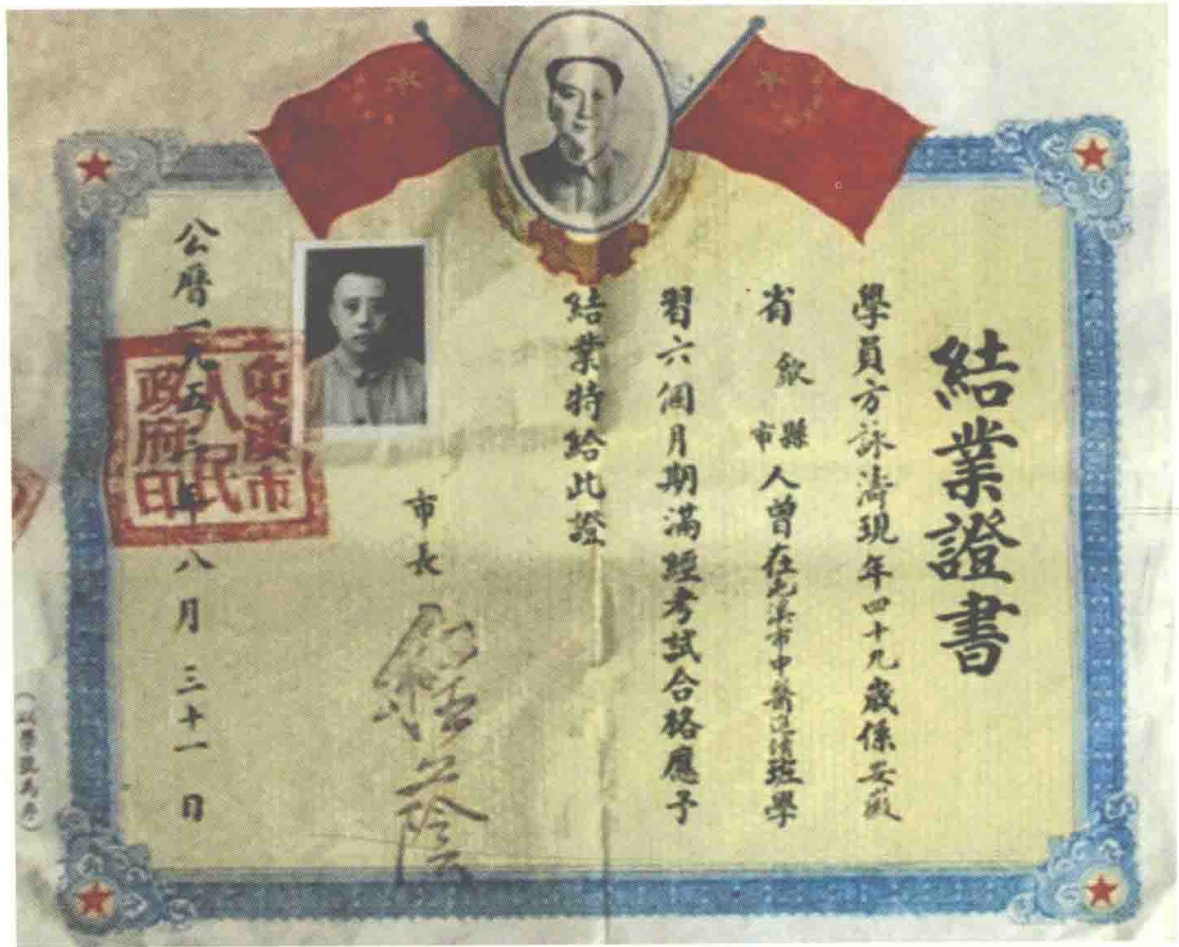 結業證書
學員方詠濤現年四十九歲係安徽
省歙縣市人曾在屯溪市中醫進修班學
習六個月期滿經考試合格應予
結業特給此證
市長
公曆一九五三年八月三十一日
屯溪市
人民
政府印